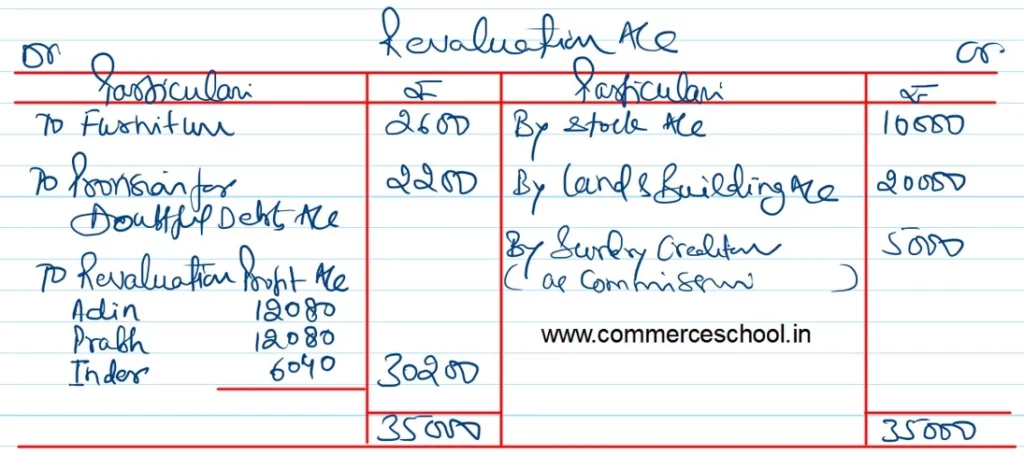 Revaluation A/c
Dr Cr
Particulars ₹ Particulars ₹
To Furniture 2600 By Stock A/c 10000
To Provision for 2200 By Land & Building A/c 20000
Doubtful Debt A/c
By Sundry Creditors 5000
To Revaluation Profit A/c ( as Commission )
Adin 12080
Prabh 12080 www.commerceschool.in
Inder 6040 30200
35000 35000